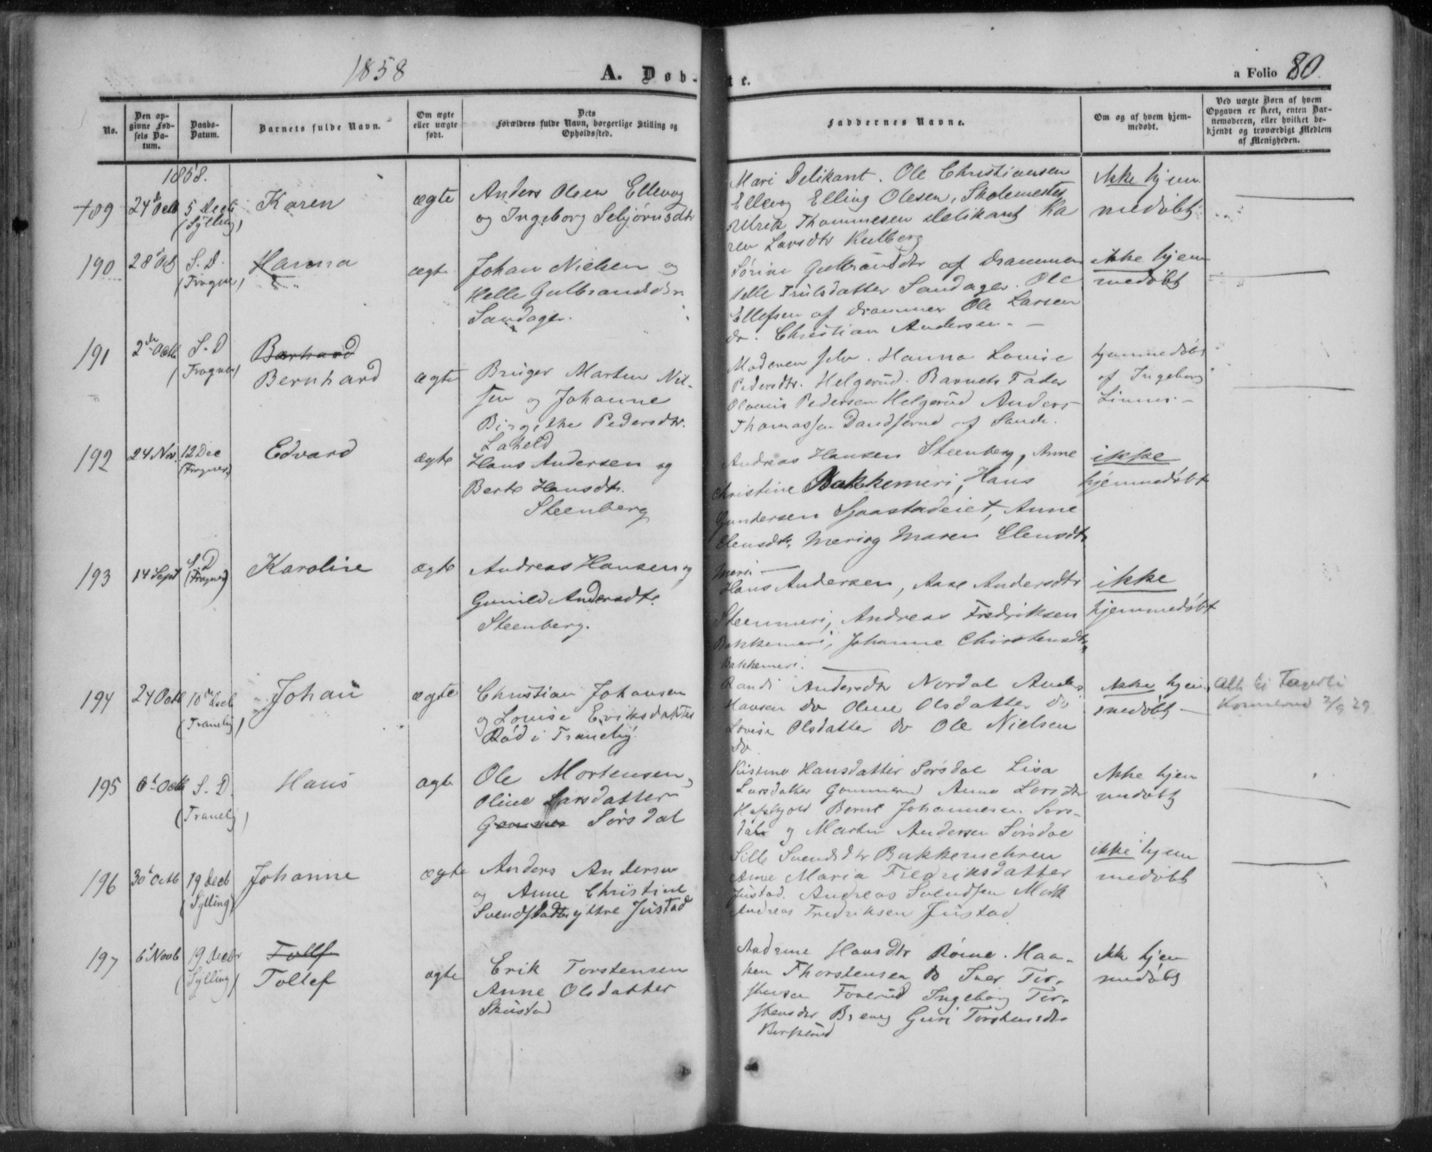 1858
A. Døb-
te.
a Folio 80.
No.
Den op-
givne Fød-
sels Da-
tum.
Daabs-
Datum.
Barnets fulde Navn.
Om ægte
eller uægte
født.
Dets
Forældres fulde Navn, borgerlige Stilling og
Opholdssted.
Faddernes Navne.
Om og af hvem hjem-
medøbt.
Ved uægte Børn af hvem
Opgaven er skeet, enten Bar-
nemoderen, eller hvilket be-
kjendt og troværdigt Medlem
af Menigheden.
1858.
189
5 Decb
(Sylling)
Karen
ægte
Anders Olsen Ellevog
og Ingeborg
Mari Delikant. Ole Christiansen
Ellevog Elling Olesen, Skolemester
Ulrik Thommesen Delikant Ka
ren Larsdtr
Ikke hjem
medøbt
190
S. D.
(Frogner)
Hanna
ægte
Johan Nielsen og
Helle Gulbrandsdtr
Sandager.
Gulbrandsdtr af Drammen
Helle Trulsdatter Sandager. Ole
Ellefsen af Drammen Ole Larsen
do. Christian Andersen.
ikke hjem
medøbt
191
S. D
(Frogner)
Bernhard
ægte
Bruger Marten Nil-
sen og Johanne
Birgithe Pedersdtr.
Moderen selv. Hanna Louise
Pedersdtr. Helgerud. Barnets Fader
Pedersen Helgerud Anders
Thomassen af Sande.
hjemmedøbt
af Ingeborg
Linnes.
192
24 Nov.
12 Dec
(Frogner)
Edvard
ægte
Hans Andersen og
Berte Hansdtr.
Steenberg
Andreas Hansen Steenberg, Anne
Christine Bakkemeri, Hans
Gundersen Gaastadeiet, Anne
Clemsdtr. Meri og Maren Clemsdtr.
Meri
ikke
hjemmedøbt
193
14 Sept
S. D
(Frogner)
Karoline
ægte
Andreas Hansen og
Gunild Andersdtr.
Steenberg.
Hans Andersen, Aase Andersdtr
Steenmeri, Andreas Fredriksen
Bakkemeri, Johanne Christensdtr.
Bakkemeri.
ikke
hjemmedøbt
194
24 Octb
10 Decb
(Tranby)
Johan
ægte
Christian Johansen
og Lovise Eriksdatter
Rød i Tranby.
Randi Andersdtr Nordal Anders
Hansen do Oline Olsdatter do
Lovise Olsdatter do Ole Nielsen
do
Ikke hjem
medøbt
195
6 Octb
S. D.
(Tranby)
Hans
ægte
Ole Mortensen,
Oline Larsdatter
Sørsdal
Kristine Hansdatter Sørsdal Lisa
Larsdatter Anne Larsdtr
Bernt Johannesen Sørs-
dal og Martin Andersen Sørsdal
Ikke hjem
medøbt
196
30 Octb
19 Decb
(Sylling)
Johanne
ægte
Anders Andersen
og Anne Christine
Svendsdatter yttre Justad
Sille Svendsdtr Bakkenehren
Anne Maria Fredriksdatter
Justad. Andreas Svendsen
Andreas Fredriksen Justad
ikke hjem
medøbt
197
6 Novb
19 Decbr
(Sylling)
Tolf
Tollef
ægte
Erik Torstensen
Anne Olsdatter
Skustad
Hansdtr Haa-
ken Thorstensen do Iver Tor-
stensen Ingeborg Tor-
stensdtr Guri Torstensdtr
ikke hjem
medøbt